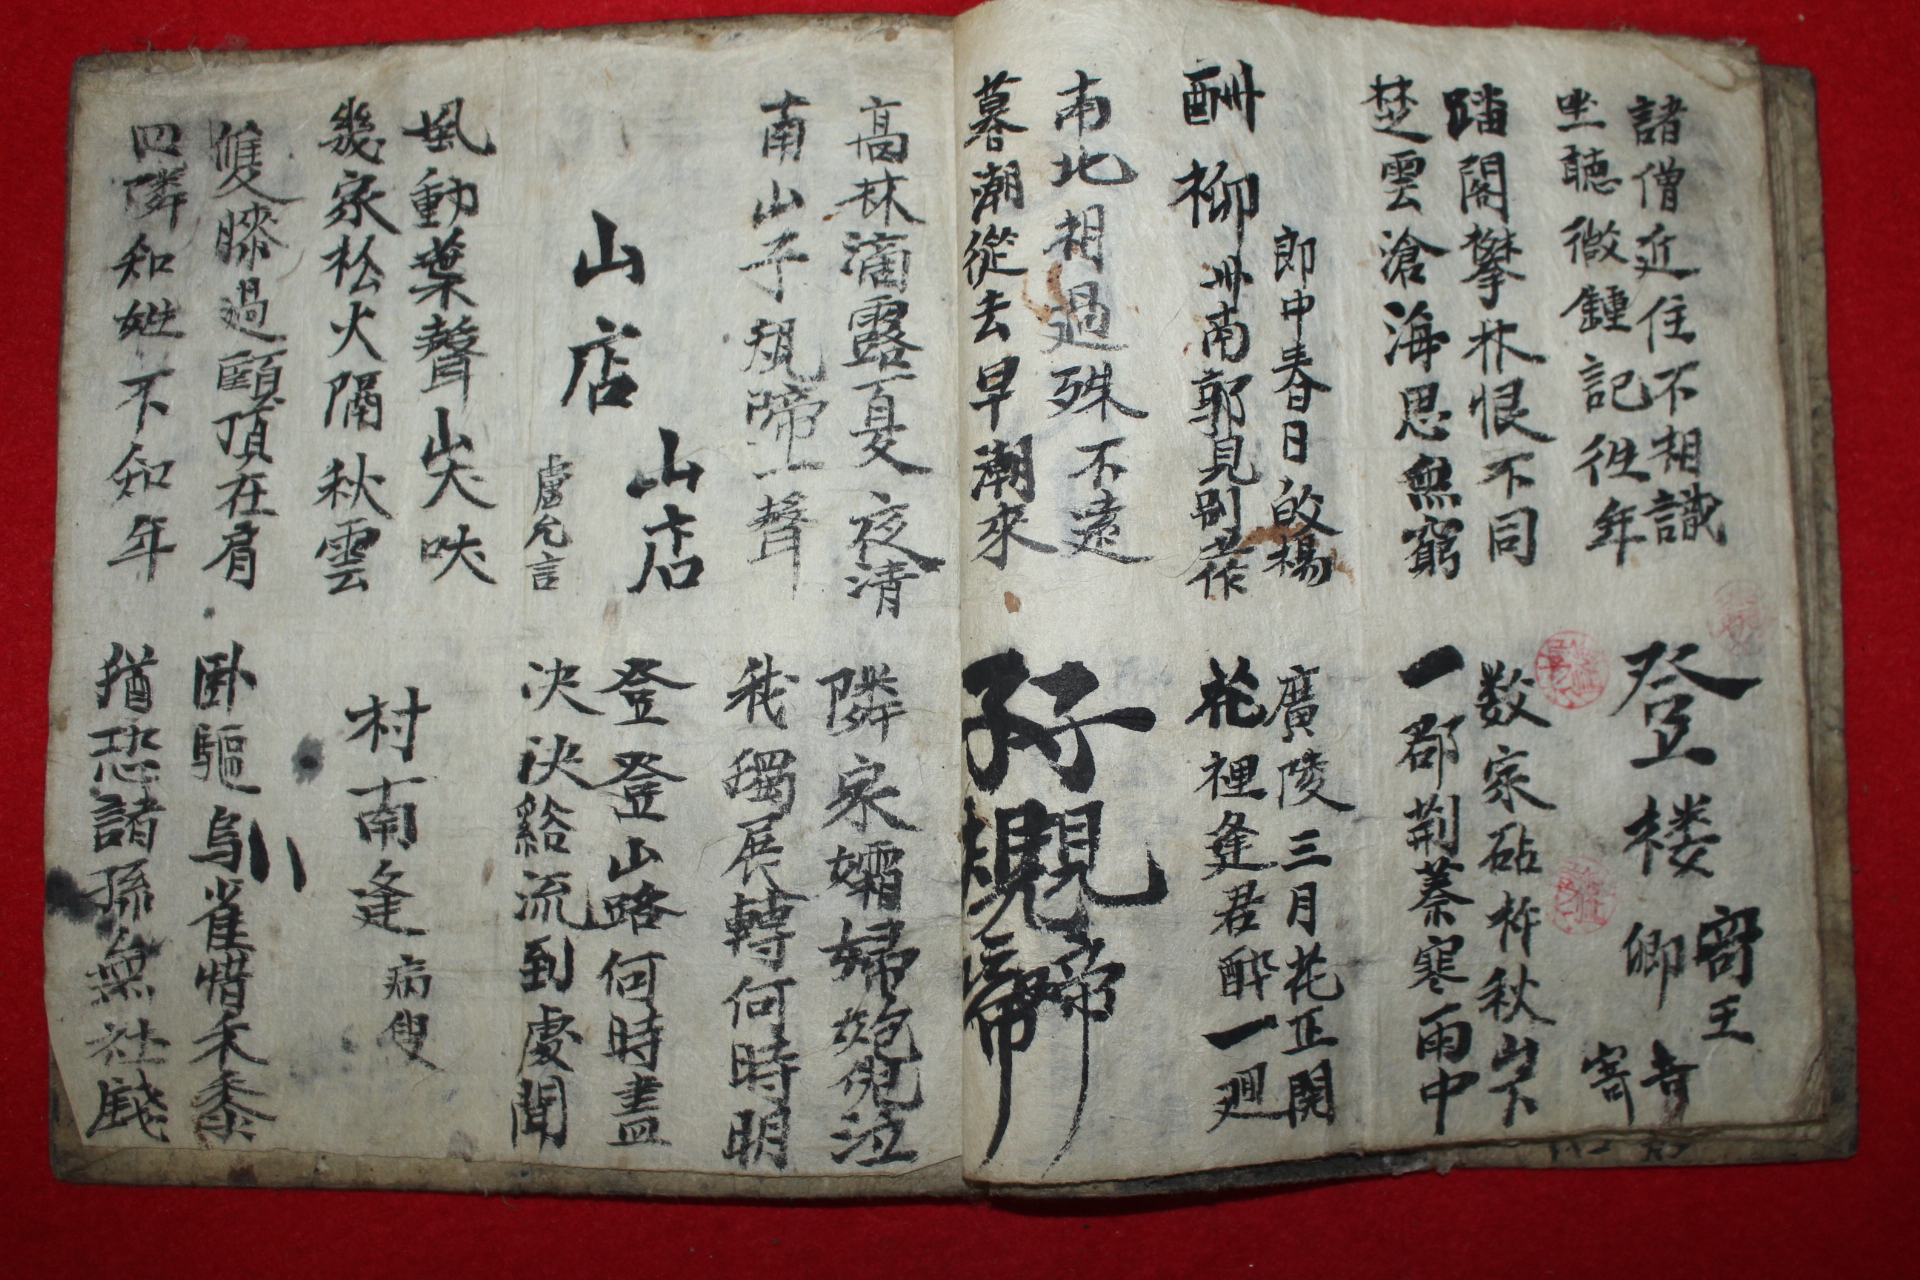 諸僧近住不相識
坐聽微鍾記徃年
登楼 寄王卿
寄 奇
踏閣攀林恨不同
楚雲滄海思無窮
数家砧杵秋山下
一郡荊蓁寒雨中
酬柳
郎中春日皈楊
州南郭見別作
廣陵三月花正開
花裡逢君醉一廻
南北相過殊不遠
暮潮從去早潮來
子規啼
子規啼
高林滴露夏夜清
南山子規啼一聲
隣家孀婦抱兒泣
我獨展轉何時明
山店
山店
盧允言
登登山路何時盡
決決谿流到處聞
風動葉聲山犬吠
幾家松火隔秋雲
村南逢病叟
雙膝過頤頂在肩
四隣知姓不知年
臥驅烏雀惜禾黍
猶恐諸孫無社錢